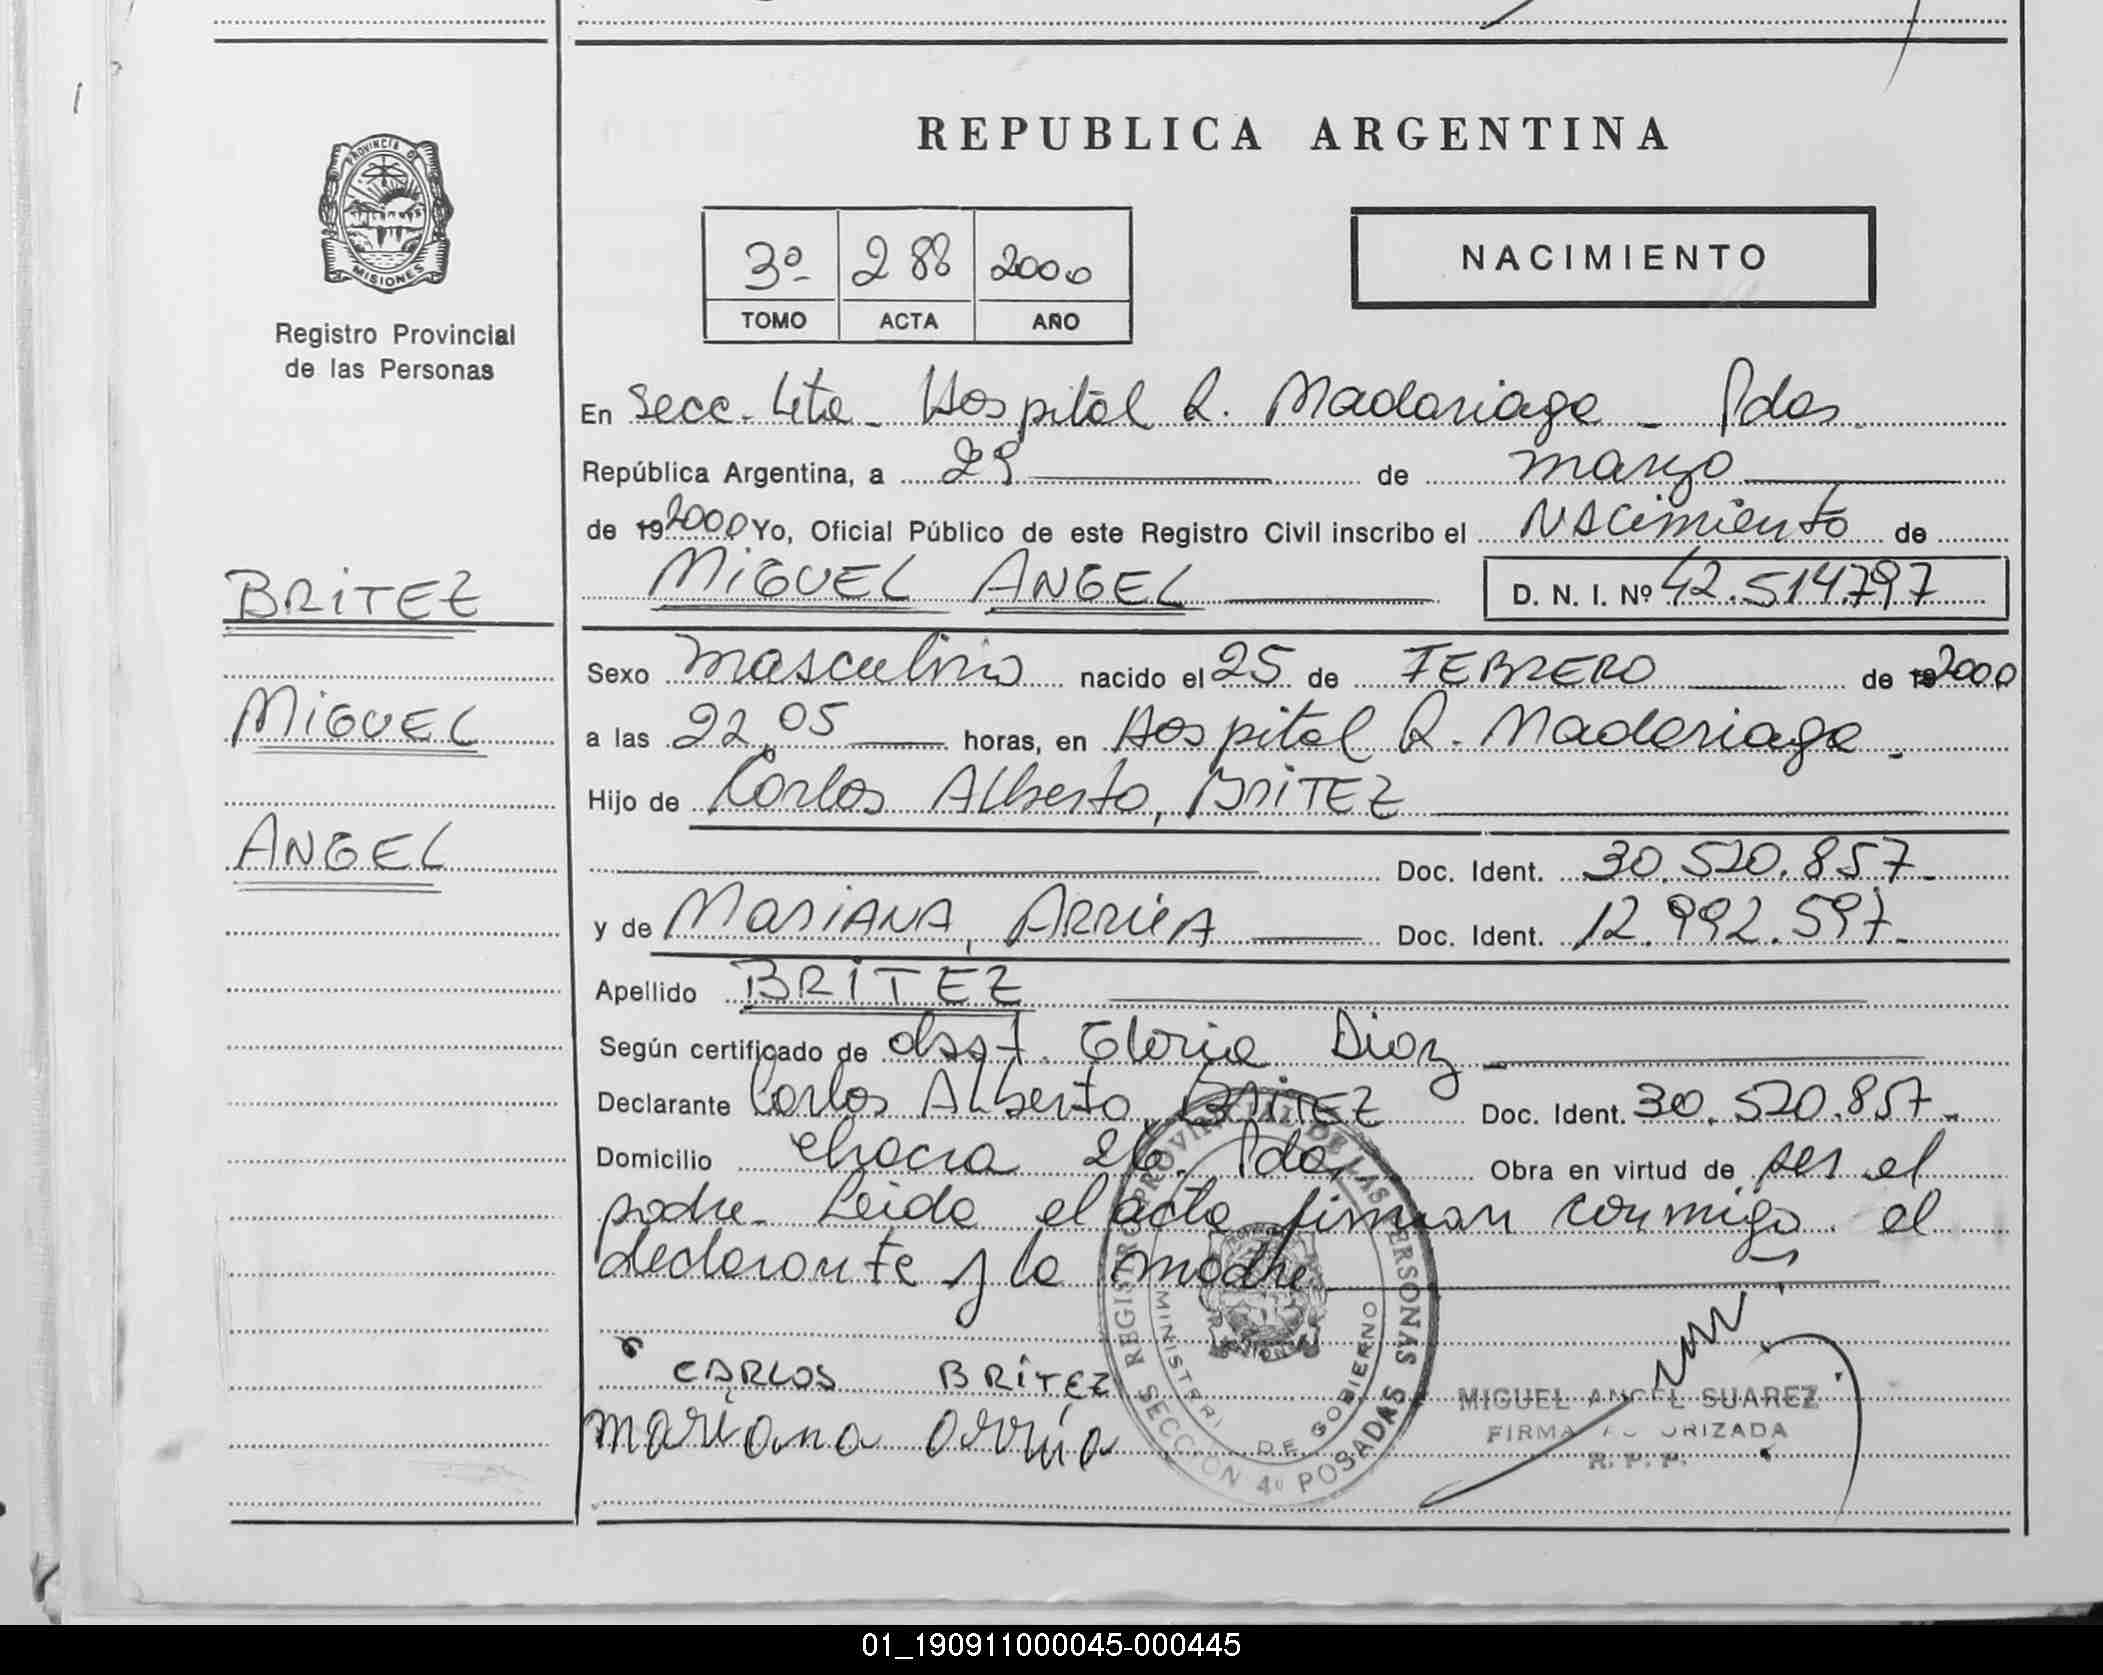 REPUBLICA ARGENTINA
PROVINCIA DE
MISIONES
Registro Provincial
de las Personas
3º 288 2000
TOMO ACTA AÑO
NACIMIENTO
En Secc. 4ta - Hospital R. Madariaga - Pdas.
República Argentina, a 29 de marzo
de 19 2000 Yo, Oficial Público de este Registro Civil inscribo el Nacimiento de
MIGUEL ANGEL D. N. I. Nº 42.514.797
BRITEZ
MIGUEL
ANGEL
Sexo masculino nacido el 25 de FEBRERO de 19 2000
a las 22,05 horas, en Hospital R. Madariaga -
Hijo de Carlos Alberto, BRITEZ
Doc. Ident. 30.520.857-
y de MARIANA, ARRUA Doc. Ident. 12.992.597-
Apellido BRITEZ
Según certificado de obst. Gloria Diaz
Declarante Carlos Alberto, BRITEZ Doc. Ident. 30.520.857-
Domicilio Chacra 26. Pdas. Obra en virtud de ser el
padre - Leida el acta firman conmigo el
declarante y la madre
REGISTRO PROVINCIAL DE LAS PERSONAS
MINISTERI DE GOBIERNO
SECCION 4º POSADAS
CARLOS BRITEZ
mariana arrúa
MIGUEL ANGEL SUAREZ
FIRMA AU ORIZADA
R. P. P.
01_190911000045-000445